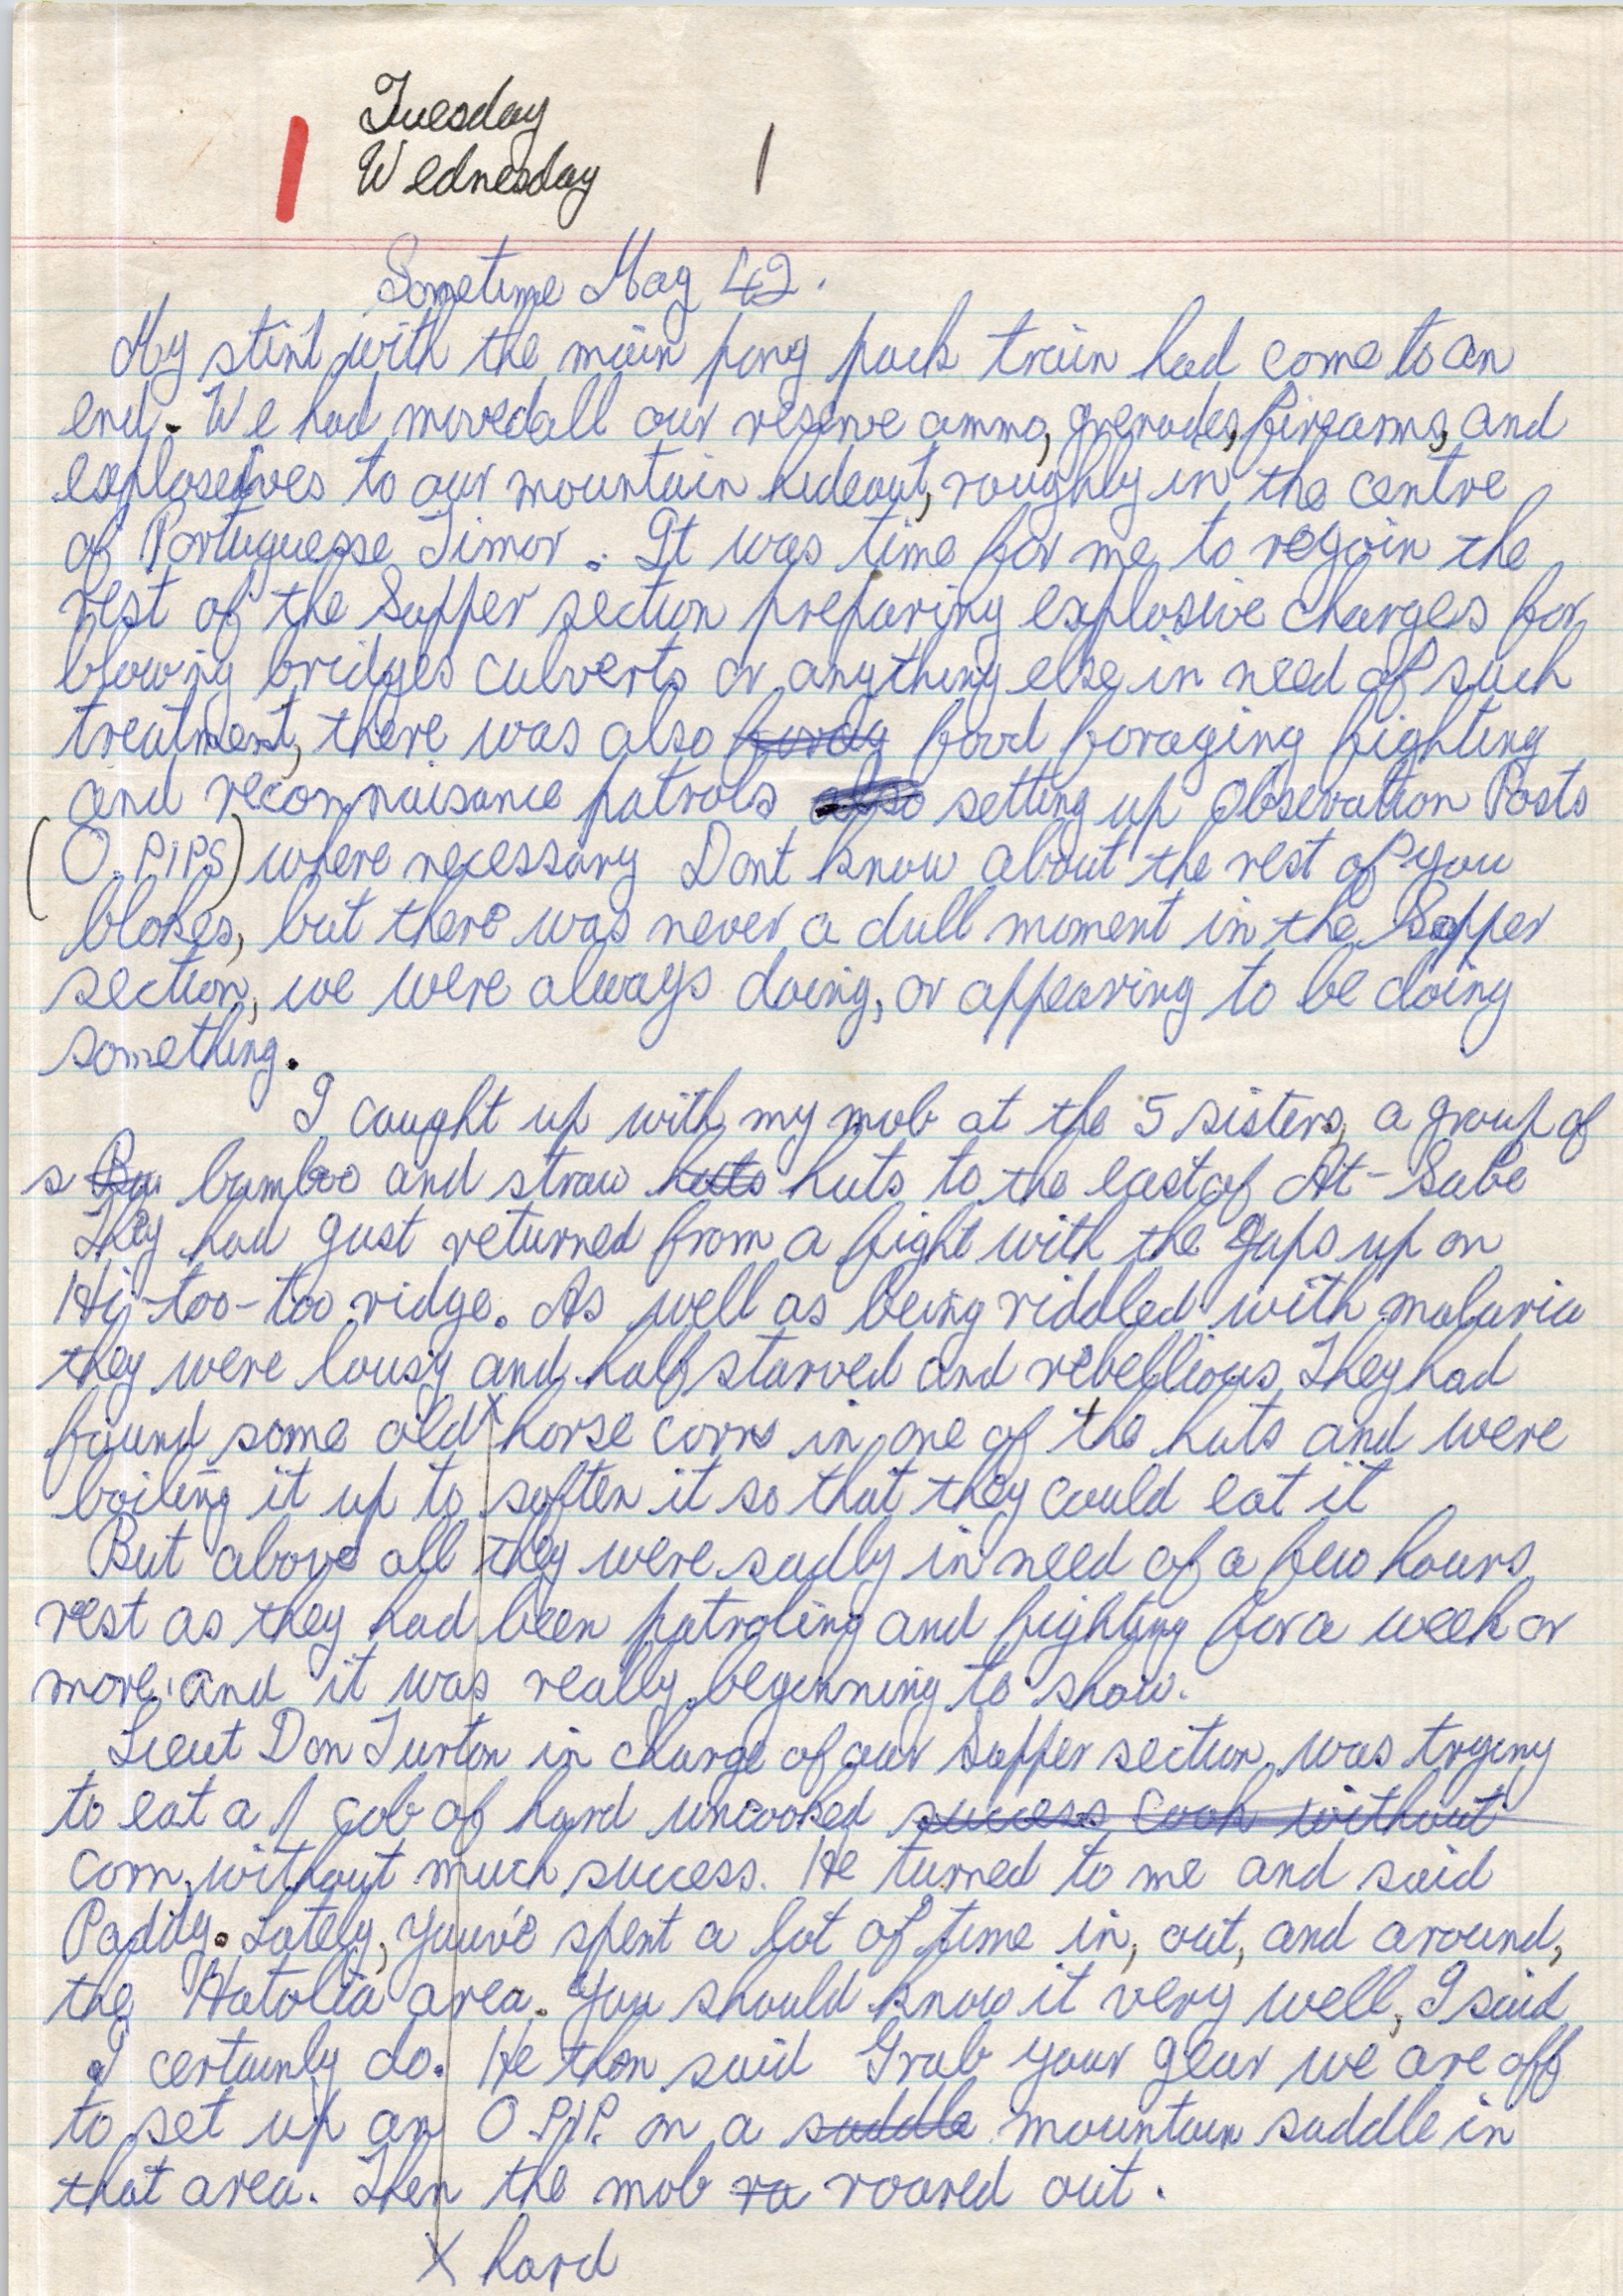 Tuesday
Wednesday
1
Sometime May 42.
My stint with the main pony pack train had come to an
end. We had moved all our reserve ammo, grenades, firearms, and
explosives to our mountain hideout, roughly in the centre
of Portuguesse Timor. It was time for me to regoin the
rest of the Sapper section preparing explosive charges for
blowing bridges culverts or anything else in need of such
treatment, there was also forag food foraging fighting
and reconnaisance patrols also setting up Observation Posts
(O.PIPS) where necessary Dont know about the rest of you
blokes, but there was never a dull moment in the Sapper
section, we were always doing, or appearing to be doing
something.
I caught up with my mob at the 5 sisters, a group of
5 Ba bamboo and straw huts huts to the east of At-Sabe
They had gust returned from a fight with the Japs up on
Hi-too-too ridge. As well as being riddled with malaria
they were lousy and half starved and rebellious They had
found some old x horse corn in one of the huts and were
boiling it up to soften it so that they could eat it
But above all they were sadly in need of a few hours
rest as they had been patroling and fighting for a week or
more and it was really beginning to show.
Lieut Don Turton in charge of our Sapper section, was trying
to eat a cob of hard uncooked success cook without
corn, without much success. He turned to me and said
Paddy. Lately, you've spent a lot of time in, out, and around,
the Hatolia area. You should know it very well, I said
I certainly do. He then said Grab your gear we are off
to set up an O.PIP. on a saddle mountain saddle in
that area. Then the mob ra roared out.
X hard